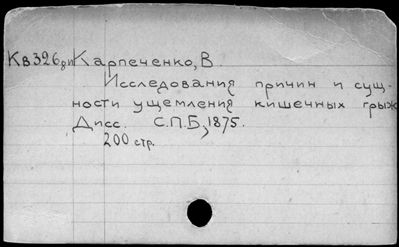 Кв326ди Карпеченко, В.
Исследования причин и сущ-
ности ущемления кишечных грыж
Дисс. С.П.Б, 1875.
200 стр.